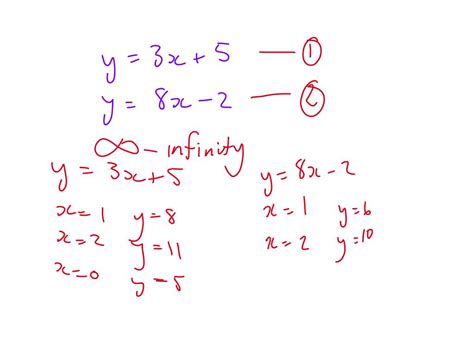 y = 3x + 5 — ①
y = 8x - 2 — ②
∞ - infinity
y = 3x + 5
x = 1 y = 8
x = 2 y = 11
x = 0 y = 5
y = 8x - 2
x = 1 y = 6
x = 2 y = 10